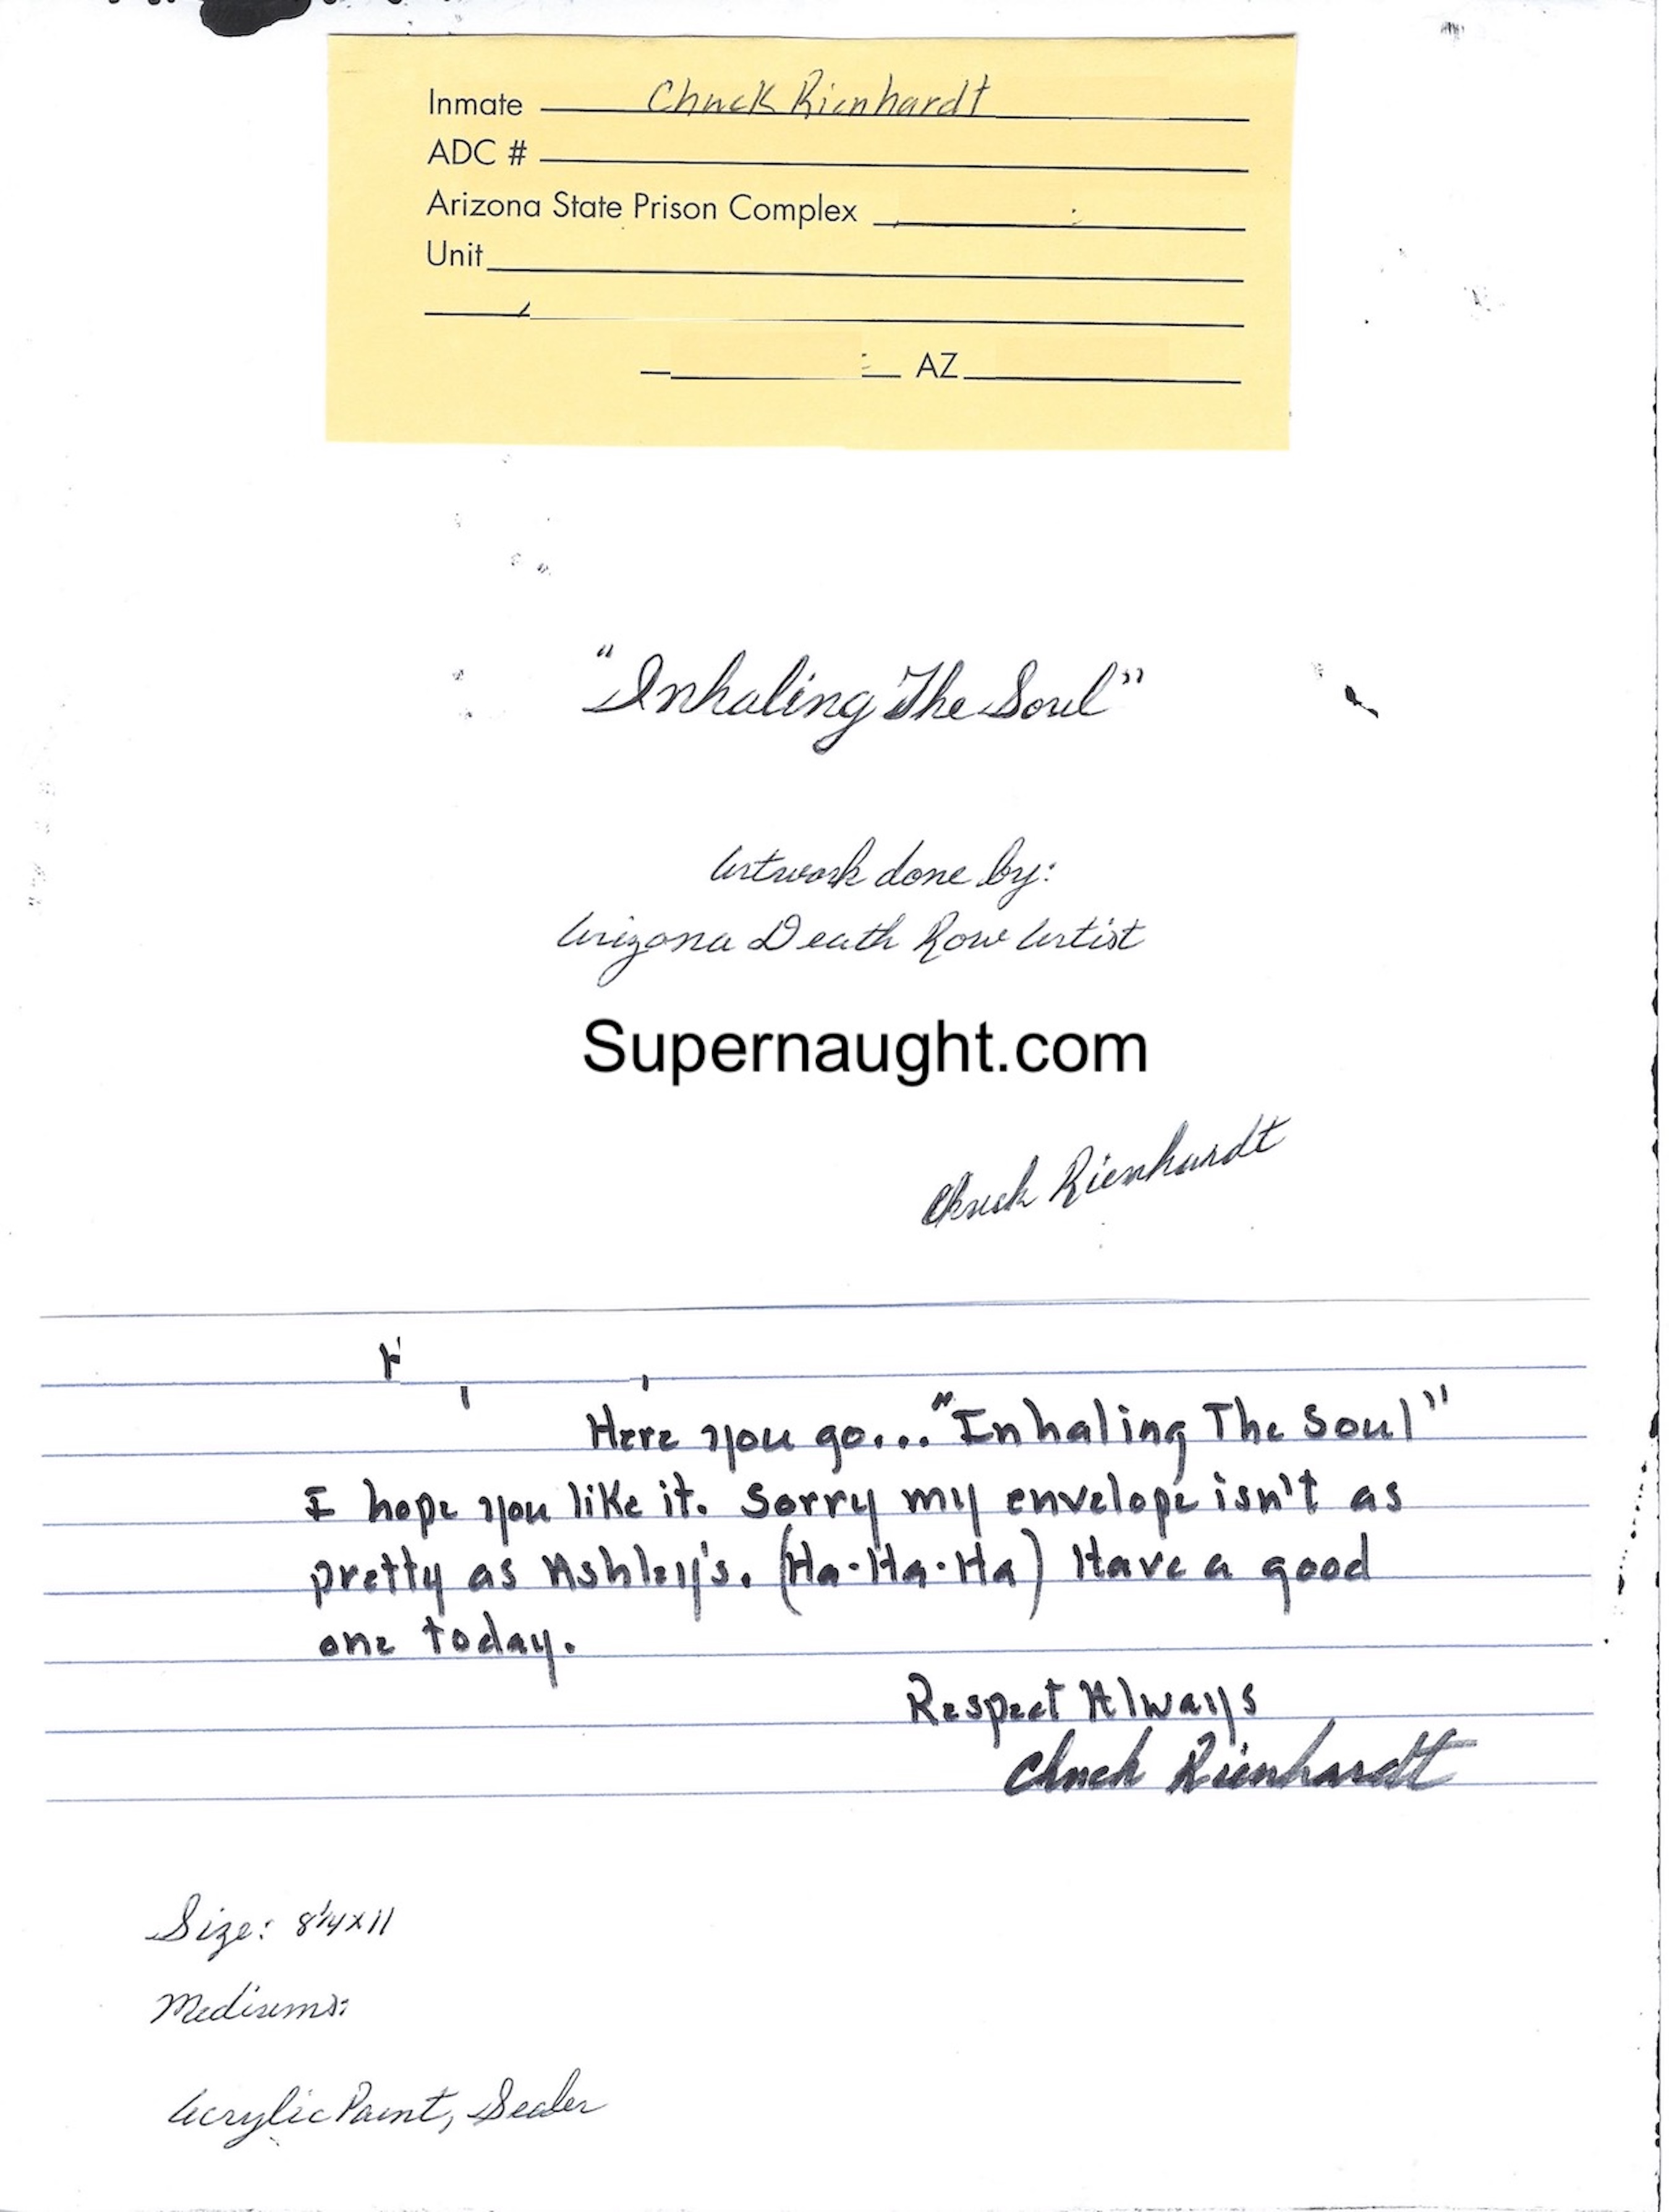 Inmate Chuck Rienhardt
ADC #
Arizona State Prison Complex
Unit
AZ
"Inhaling The Soul"
Artwork done by:
Arizona Death Row Artist
Supernaught.com
Chuck Rienhardt
Here you go... "Inhaling The Soul"
I hope you like it. Sorry my envelope isn't as
pretty as Ashley's. (Ha-Ha-Ha) Have a good
one today.
Respect Always
Chuck Rienhardt
Size: 8 1/4 x 11
Mediums:
Acrylic Paint, Sealer